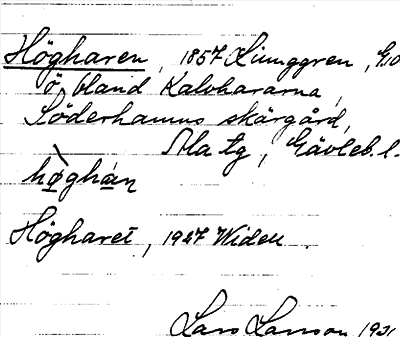 Högharen, 1857 Ljunggren, G.o
ö bland Kalvhararna,
Söderhamns skärgård,
Ala tg, Gävleb.l.
høghàn
Högharet, 1927 Widell
Lars Larsson 1931